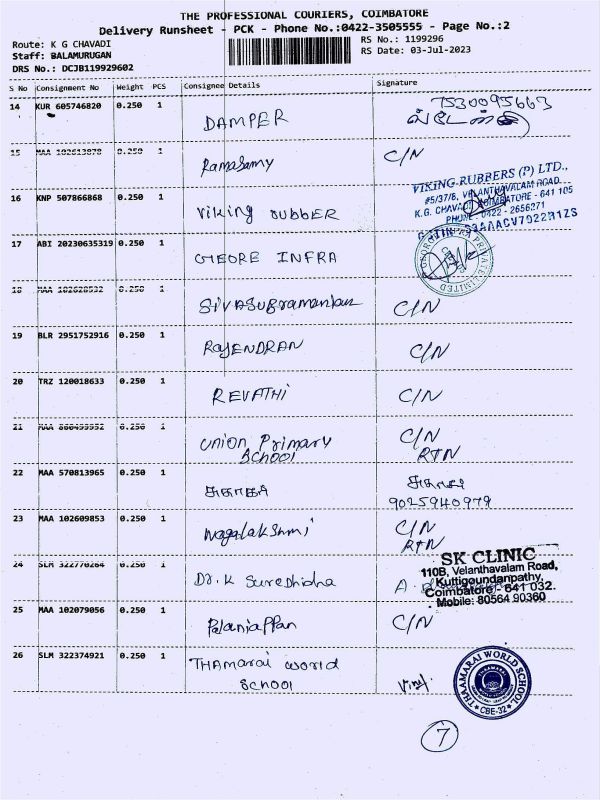 THE PROFESSIONAL COURIERS, COIMBATORE
Delivery Runsheet - PCK - Phone No.:0422-3505555 - Page No.:2
Route: K G CHAVADI
RS No.: 1199296
Staff: BALAMURUGAN
RS Date: 03-Jul-2023
DRS No.: DCJB119929602
S No Consignment No Weight PCS Consignee Details Signature
14 KUR 605746820 0.250 1 DAMPER 7530095663
15 MAA 0.250 1 Ramasamy C/N
16 KNP 507866868 0.250 1 Viking RUBBER
VIKING RUBBERS (P) LTD.,
#5/37/8, VELANTHAVALAM ROAD,
K.G. CHAVADI, COIMBATORE - 641 105
PHONE: 0422 - 2656271
17 ABI 20230635319 0.250 1 GEORE INFRA
PRIVATE LIMITED
18 MAA 0.250 1 C/N
19 BLR 2951752916 0.250 1 RAJENDRAN C/N
20 TRZ 120018633 0.250 1 REVATHI C/N
21 MAA 0.250 1 Union Primary School C/N RTN
22 MAA 570813965 0.250 1 9025940979
23 MAA 102609853 0.250 1 Nagalakshmi C/N RTN
24 SLM 322770264 0.250 1 Dr. K
SK CLINIC
110B, Velanthavalam Road,
Kuttigoundanpathy,
Coimbatore - 641 032.
Mobile: 80564 90360
25 MAA 102079056 0.250 1 Palaniappan C/N
26 SLM 322374921 0.250 1 THAMARAI World School
THAAMARAI WORLD SCHOOL
CBE-32
7